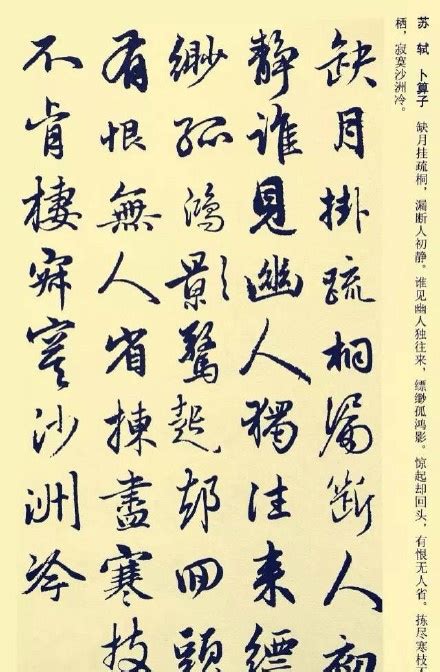 苏 轼 卜算子 缺月挂疏桐，漏断人初静。谁见幽人独往来，缥缈孤鸿影。惊起却回头，有恨无人省。拣尽寒枝不
栖，寂寞沙洲冷。
缺月掛疏桐漏断人初
静谁見幽人獨往来缥
缈孤鴻影驚起却回頭
有恨無人省揀盡寒枝
不肯棲寂寞沙洲冷